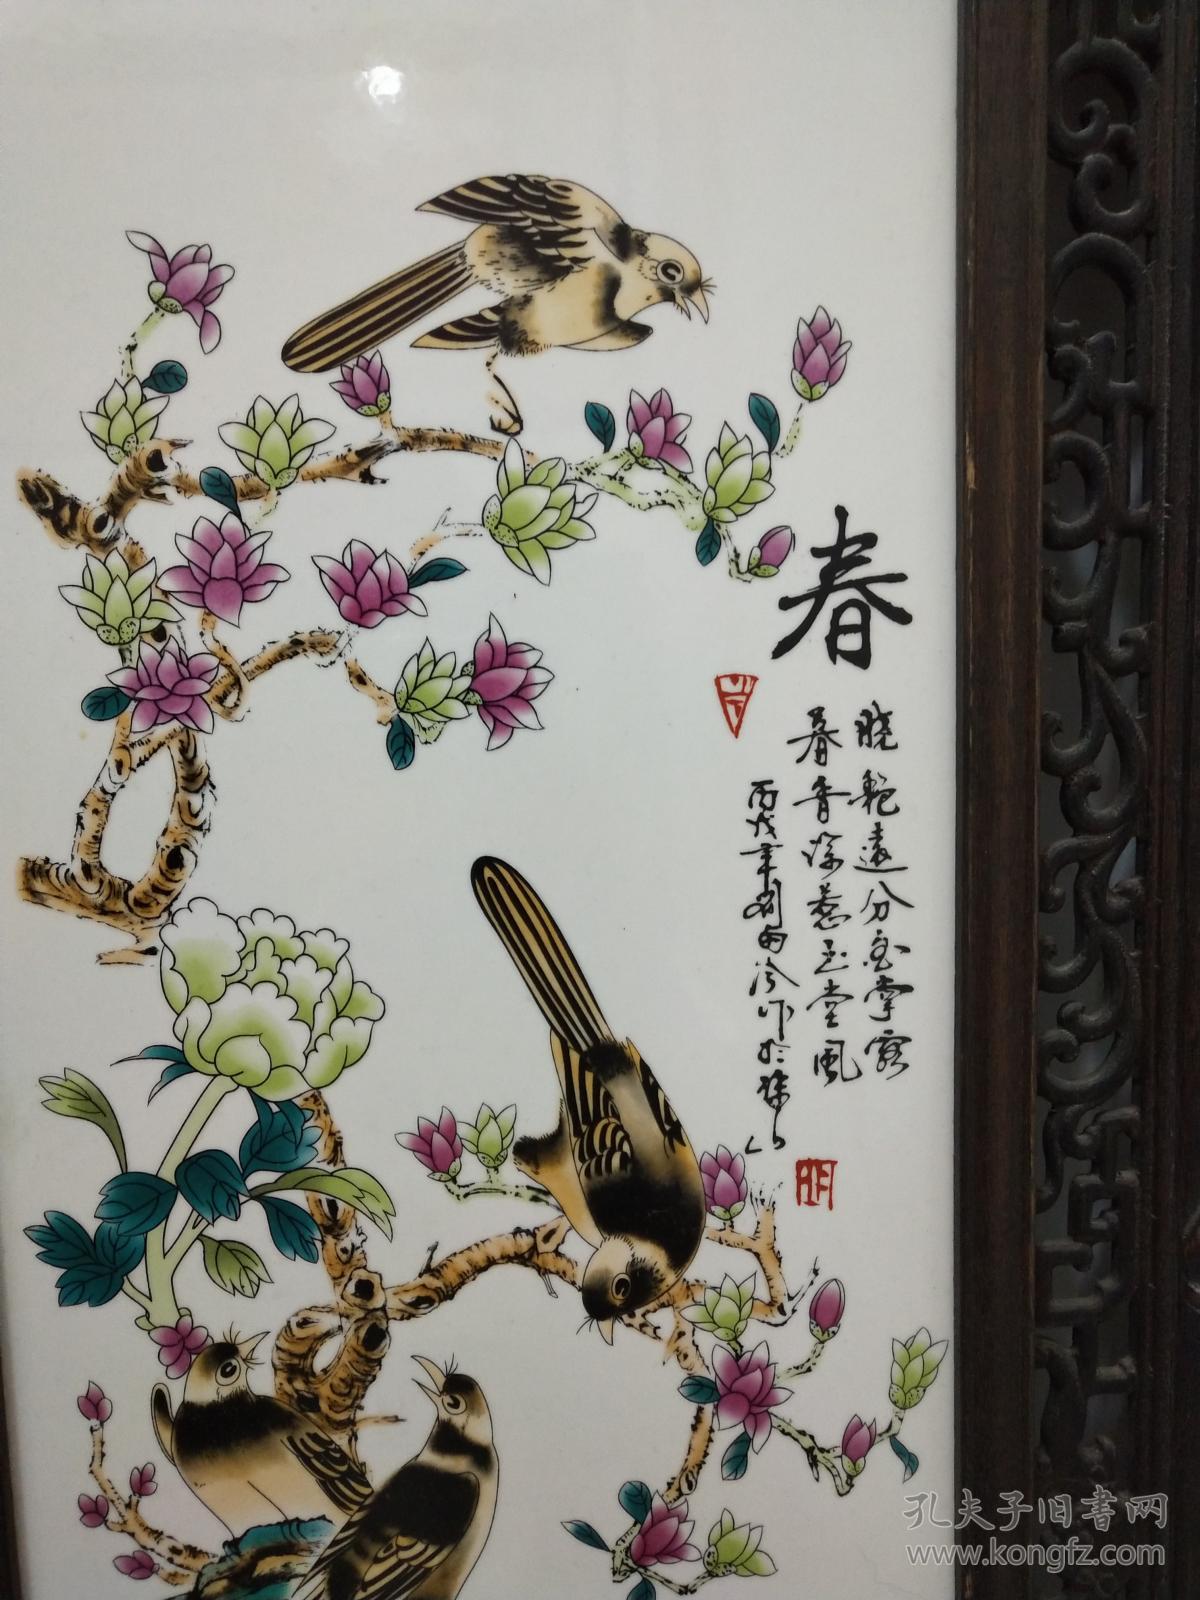 春
晓艳遠分金掌露
暮香深惹玉堂風
丙戌年刘雨岑作於珠山
孔夫子旧书网
www.kongfz.com